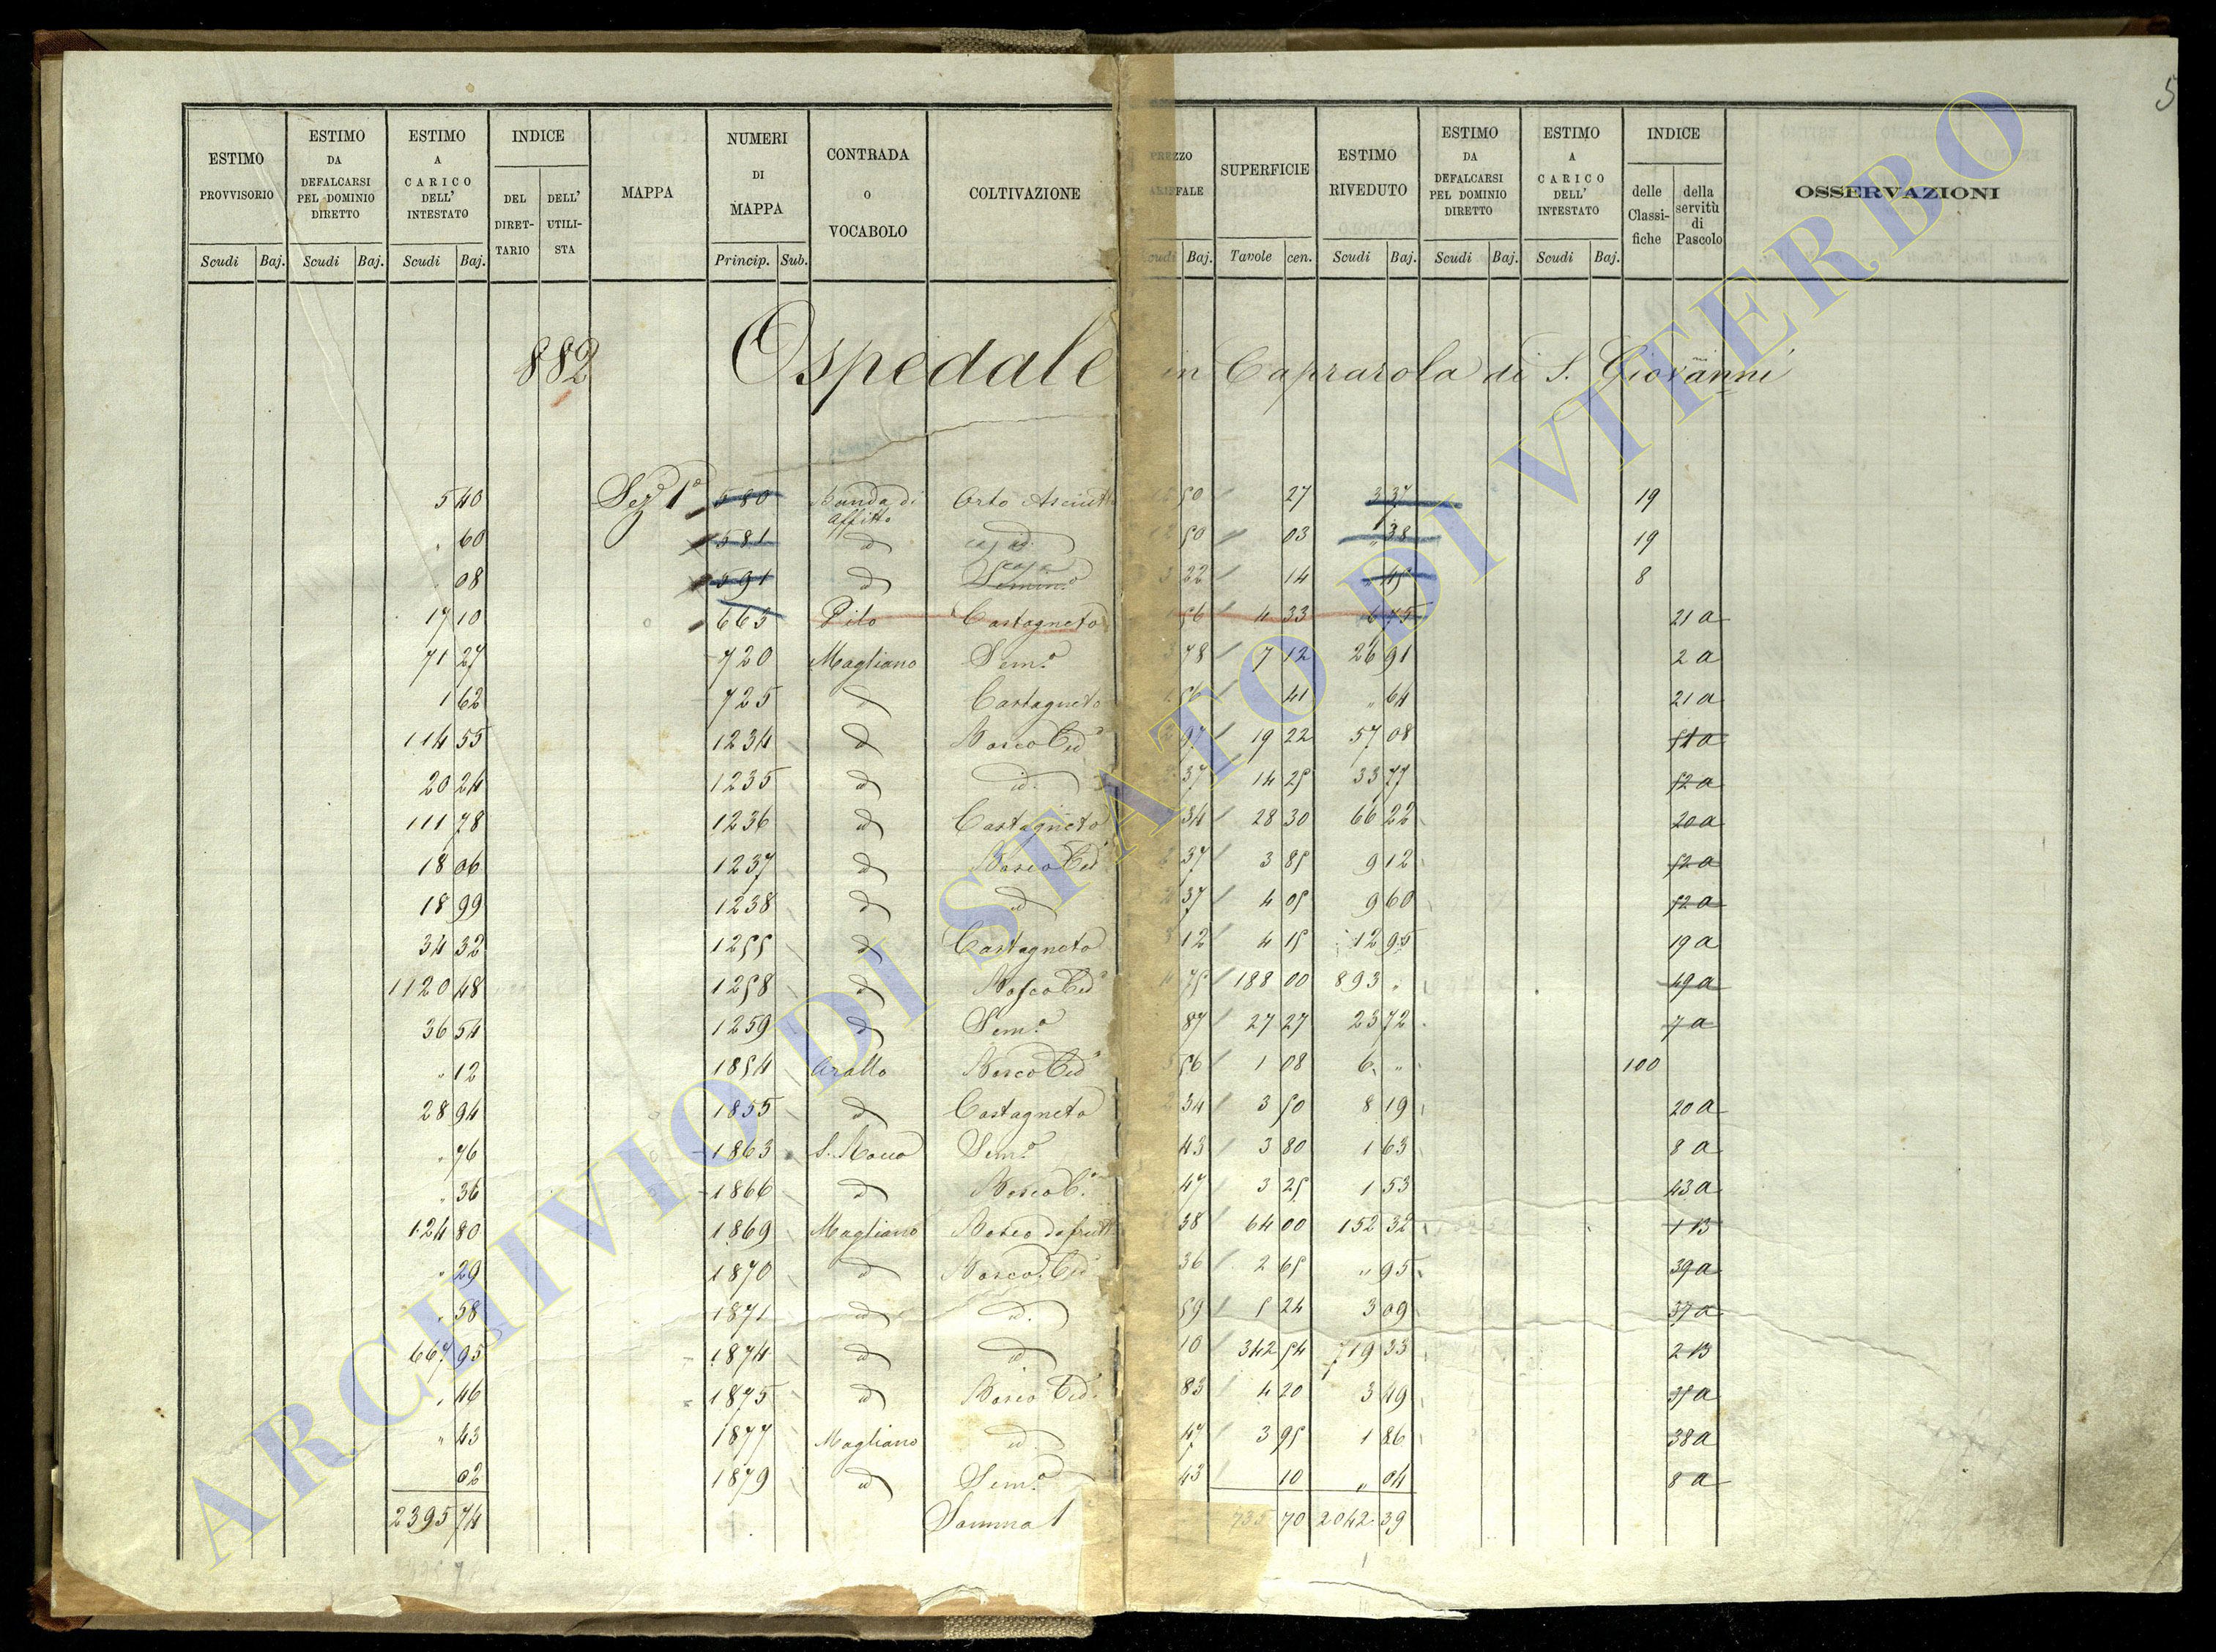 5
ESTIMO PROVVISORIO | ESTIMO DA DEFALCARSI PEL DOMINIO DIRETTO | ESTIMO A CARICO DELL' INTESTATO | INDICE DEL DIRETTARIO | DELL' UTILISTA | MAPPA | NUMERI DI MAPPA | CONTRADA O VOCABOLO | COLTIVAZIONE | SUPERFICIE | ESTIMO RIVEDUTO | ESTIMO DA DEFALCARSI PEL DOMINIO DIRETTO | ESTIMO A CARICO DELL' INTESTATO | INDICE delle Classifiche | della servitù di Pascolo | OSSERVAZIONI
Scudi Baj. Scudi Baj. Scudi Baj. Princip. Sub. Baj. Tavole cen. Scudi Baj. Scudi Baj. Scudi Baj.
882 Ospedale in Caprarola di S. Giovanni
5 40 Sez. 1a 580 Banda di Affitto Orto Asciutto 50 27 3 37 19
" 60 581 id id. 50 03 " 38 19
08 591 id casa Semin.o 22 14 " 45 8
17 10 663 Pilo Castagneto 56 4 33 6 75 21 a
71 27 720 Magliano Sem.o 78 7 12 26 91 2 a
1 62 725 id Castagneto 56 41 " 64 21 a
114 55 1234 id Bosco Ced.o 97 19 22 57 08 51 a
20 24 1235 id id. 37 14 25 33 77 52 a
111 78 1236 id Castagneto 34 28 30 66 22 20 a
18 06 1237 id Bosco Ced.o 37 3 85 9 12 52 a
18 99 1238 id id 37 4 05 9 60 52 a
34 32 1255 id Castagneto 12 4 15 12 95 19 a
1120 48 1258 id Bosco Ced.o 75 188 00 893 " 49 a
36 54 1259 id Sem.o 87 27 27 23 72 7 a
" 12 1854 Bosco Ced.o 56 1 08 6 " 100
28 94 1855 id Castagneto 34 3 50 8 19 20 a
" 76 1863 S. Rocco Sem.o 43 3 80 1 63 8 a
" 36 1866 id Bosco C. 47 3 25 1 53 43 a
124 80 1869 Magliano Bosco da frutt 38 64 00 152 32 1 13
" 29 1870 id Bosco Ced.o 36 2 65 " 95 39 a
" 58 1871 id id. 59 5 24 3 09 37 a
667 95 1874 id id 10 342 54 719 33 2 13
" 46 1875 id Bosco Ced. 83 4 20 3 49 35 a
" 43 1877 Magliano id 47 3 95 1 86 38 a
02 1879 id Sem.o 43 10 " 04 8 a
2395 74 Somma 1 70 2042 39
ARCHIVIO DI STATO DI VITERBO